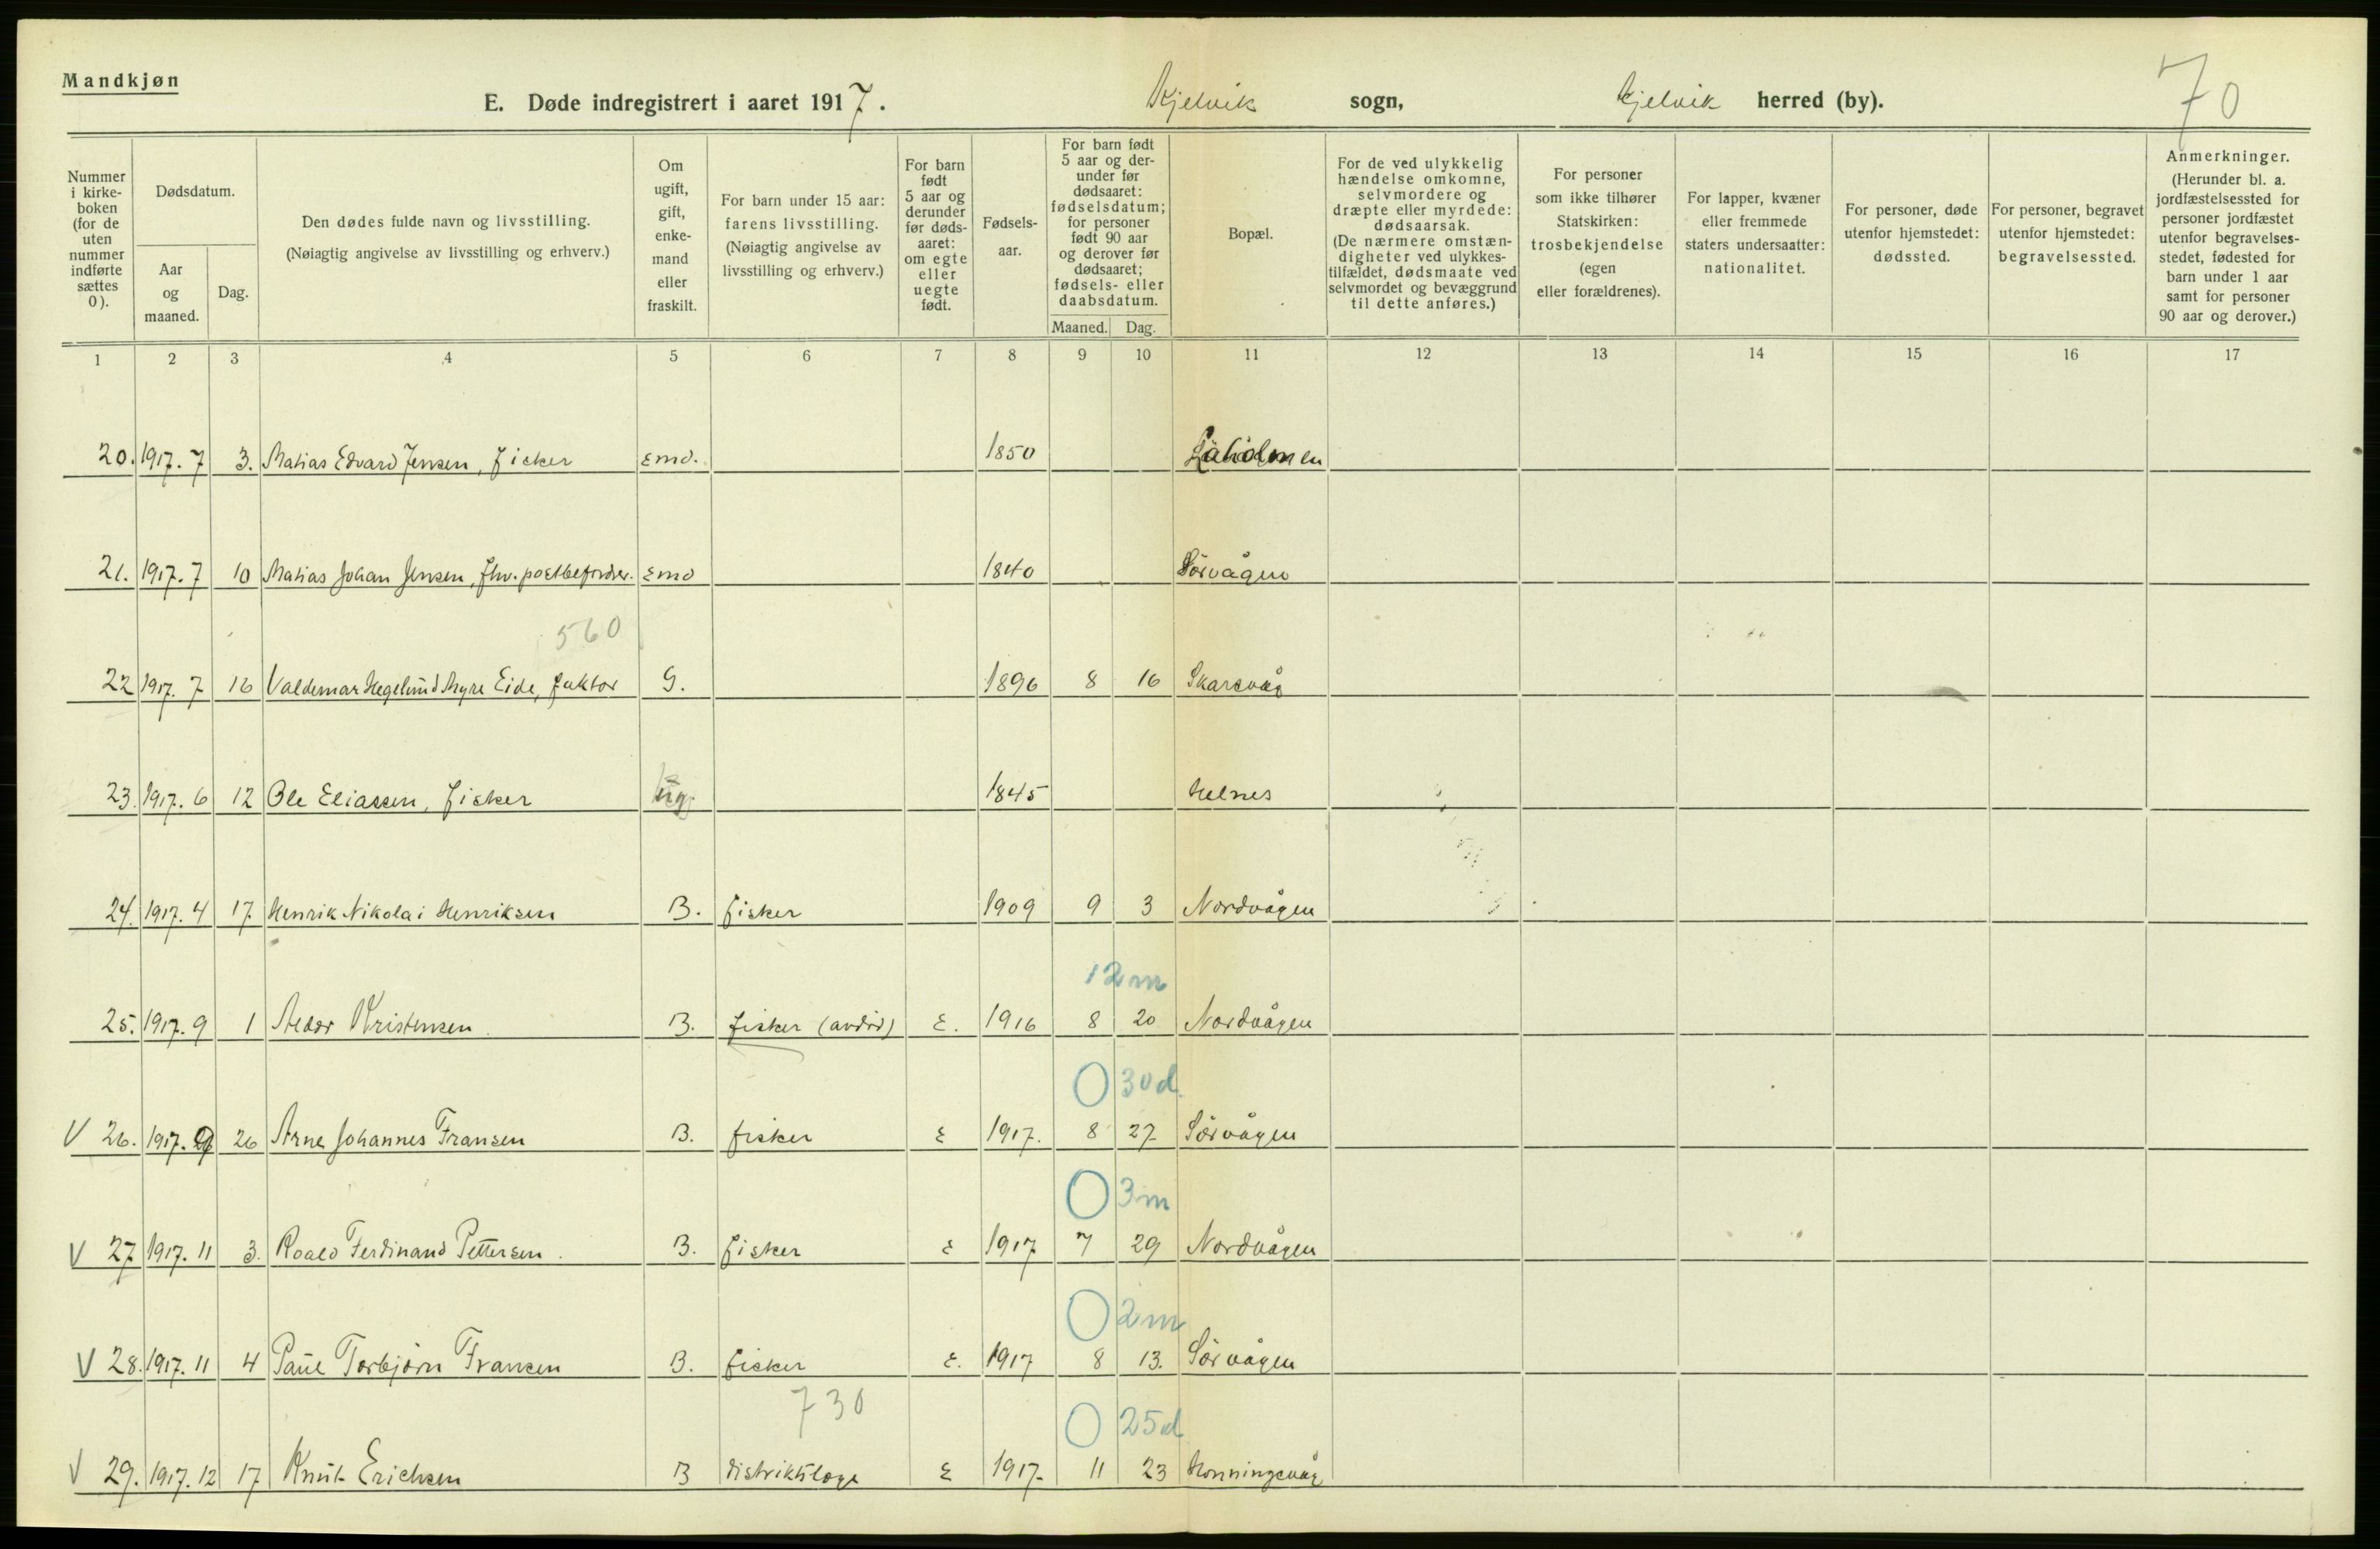 Mandkjøn
E. Døde indregistrert i aaret 1917. Kjelvik sogn, Kjelvik herred (by). 70
Nummer i kirke-boken (for de uten nummer indførte sættes 0).
Dødsdatum.
Aar og maaned.
Dag.
Den dødes fulde navn og livsstilling.
(Nøiagtig angivelse av livsstilling og erhverv.)
Om ugift, gift, enke-mand eller fraskilt.
For barn under 15 aar: farens livsstilling. (Nøiagtig angivelse av livsstilling og erhverv.)
For barn født 5 aar og derunder før døds-aaret: om egte eller uegte født.
Fødsels-aar.
For barn født 5 aar og der-under før dødsaaret: fødselsdatum; for personer født 90 aar og derover før dødsaaret; fødsels- eller daabsdatum.
Maaned. Dag.
Bopæl.
For de ved ulykkelig hændelse omkomne, selvmordere og dræpte eller myrdede: dødsaarsak. (De nærmere omstæn-digheter ved ulykkes-tilfældet, dødsmaate ved selvmordet og bevæggrund til dette anføres.)
For personer som ikke tilhører Statskirken: trosbekjendelse (egen eller forældrenes).
For lapper, kvæner eller fremmede staters undersaatter: nationalitet.
For personer, døde utenfor hjemstedet: dødssted.
For personer, begravet utenfor hjemstedet: begravelsessted.
Anmerkninger. (Herunder bl. a. jordfæstelsessted for personer jordfæstet utenfor begravelses-stedet, fødested for barn under 1 aar samt for personer 90 aar og derover.)
1 2 3 4 5 6 7 8 9 10 11 12 13 14 15 16 17
20. 1917. 7 3. Matias Edvard Jensen, fisker Emd. 1850
21. 1917. 7 10 Matias Johan Jensen, fhv. postbefordrer. Emd 1840 Sørvågen
560
22 1917. 7 16 Valdemar Hegelund Myre Eide, faktor G. 1896 8 16 Skarsvåg
23. 1917. 6 12 Ole Eliassen, fisker ug. 1845 Helnes
24. 1917. 4 17. Henrik Nikolai Henriksen B. fisker 1909 9 3 Nordvågen
12m
25. 1917. 9 1 Kristensen. B. fisker (avdød) E. 1916 8 20 Nordvågen
0 30d.
V 26. 1917. 9 26 Arne Johannes Fransen B. fisker E 1917. 8 27 Sørvågen
0 3m
V 27 1917. 11 3. Roald Ferdinand Pettersen. B. fisker E 1917 7 29 Nordvågen
0 2m
V 28. 1917. 11 4 Paul Torbjørn Fransen B. fisker E. 1917 8 13. Sørvågen
730
0 25d
V 29. 1917. 12 17 Knut Erichsen B distriktslæge E 1917. 11 23 Honningsvåg